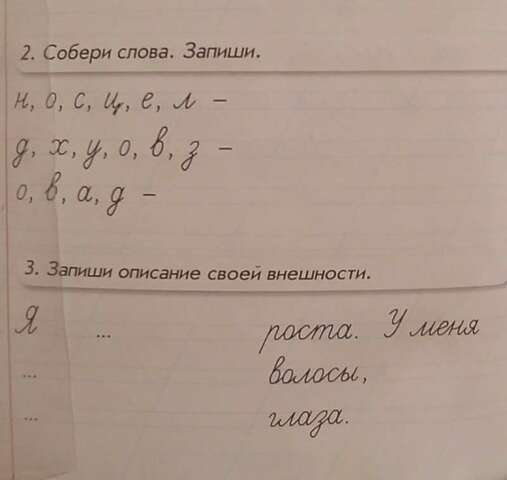 2. Собери слова. Запиши.
н, о, с, ц, е, л –
д, х, у, о, в, з –
о, в, а, д –
3. Запиши описание своей внешности.
Я ... роста. У меня
... волосы,
... глаза.